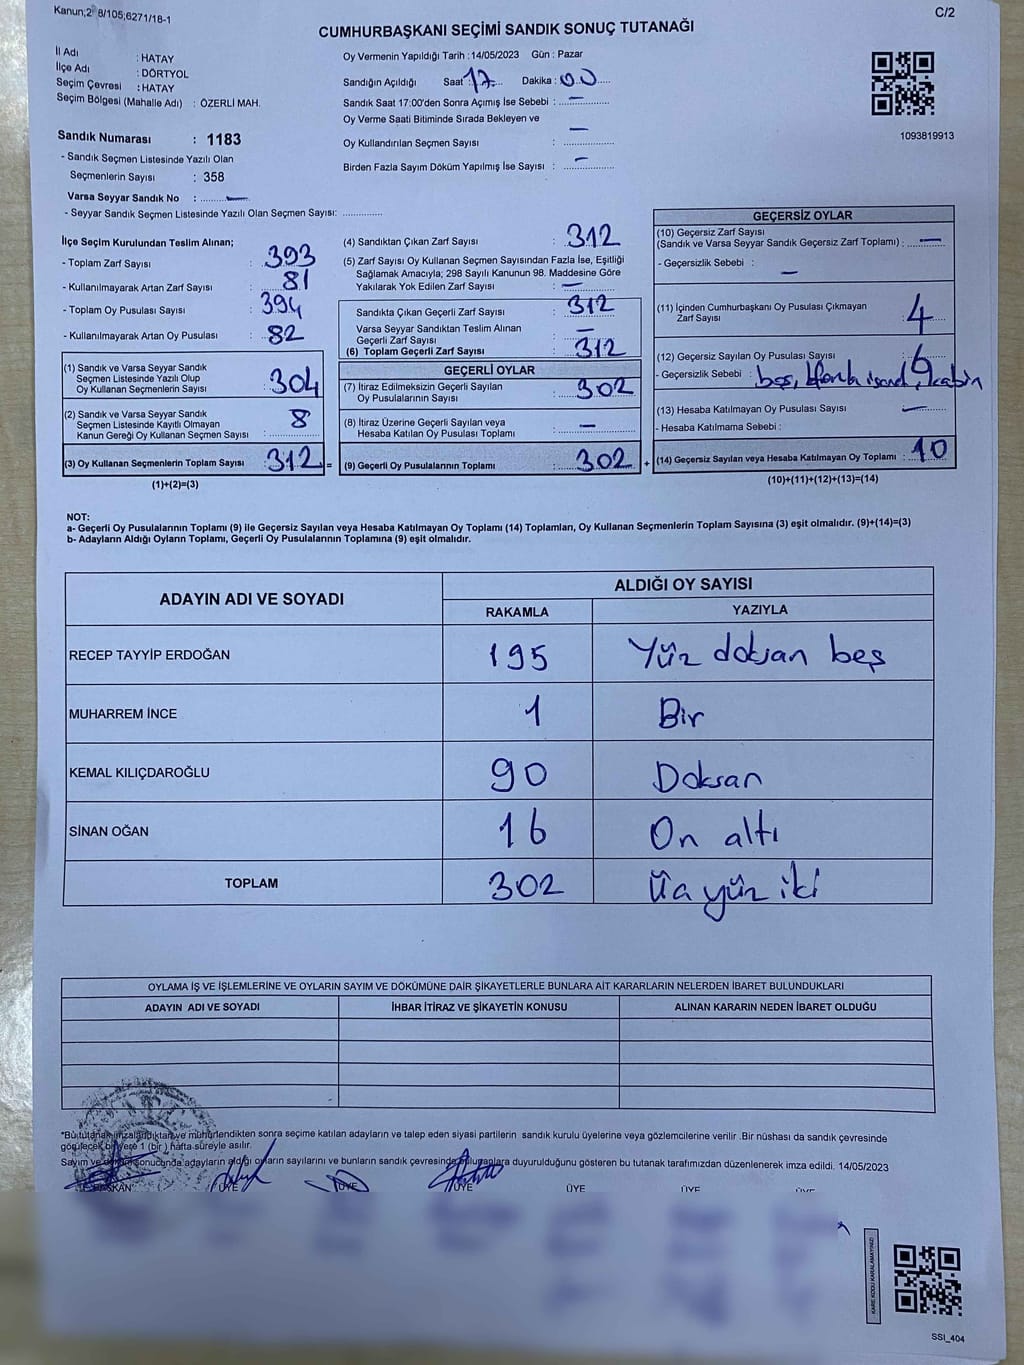 Kanun;2  8/105;6271/18-1
C/2
CUMHURBAŞKANI SEÇİMİ SANDIK SONUÇ TUTANAĞI
İl Adı : HATAY
İlçe Adı : DÖRTYOL
Seçim Çevresi : HATAY
Seçim Bölgesi (Mahalle Adı) : ÖZERLİ MAH.
Sandık Numarası : 1183
- Sandık Seçmen Listesinde Yazılı Olan
Seçmenlerin Sayısı : 358
Varsa Seyyar Sandık No : —
- Seyyar Sandık Seçmen Listesinde Yazılı Olan Seçmen Sayısı: ..............
Oy Vermenin Yapıldığı Tarih :14/05/2023 Gün : Pazar
Sandığın Açıldığı Saat :17 Dakika : 00
Sandık Saat 17:00'den Sonra Açımış İse Sebebi : —
Oy Verme Saati Bitiminde Sırada Bekleyen ve
Oy Kullandırılan Seçmen Sayısı : —
Birden Fazla Sayım Döküm Yapılmış İse Sayısı : —
1093819913
İlçe Seçim Kurulundan Teslim Alınan;
- Toplam Zarf Sayısı : 393
- Kullanılmayarak Artan Zarf Sayısı : 81
- Toplam Oy Pusulası Sayısı : 394
- Kullanılmayarak Artan Oy Pusulası : 82
(1) Sandık ve Varsa Seyyar Sandık
Seçmen Listesinde Yazılı Olup
Oy Kullanan Seçmenlerin Sayısı : 304
(2) Sandık ve Varsa Seyyar Sandık
Seçmen Listesinde Kayıtlı Olmayan
Kanun Gereği Oy Kullanan Seçmen Sayısı : 8
(3) Oy Kullanan Seçmenlerin Toplam Sayısı : 312 =
(1)+(2)=(3)
(4) Sandıktan Çıkan Zarf Sayısı : 312
(5) Zarf Sayısı Oy Kullanan Seçmen Sayısından Fazla İse, Eşitliği
Sağlamak Amacıyla; 298 Sayılı Kanunun 98. Maddesine Göre
Yakılarak Yok Edilen Zarf Sayısı : —
Sandıkta Çıkan Geçerli Zarf Sayısı : 312
Varsa Seyyar Sandıktan Teslim Alınan
Geçerli Zarf Sayısı : —
(6) Toplam Geçerli Zarf Sayısı : 312
GEÇERLİ OYLAR
(7) İtiraz Edilmeksizin Geçerli Sayılan
Oy Pusulalarının Sayısı : 302
(8) İtiraz Üzerine Geçerli Sayılan veya
Hesaba Katılan Oy Pusulası Toplamı : —
(9) Geçerli Oy Pusulalarının Toplamı : 302 +
GEÇERSİZ OYLAR
(10) Geçersiz Zarf Sayısı
(Sandık ve Varsa Seyyar Sandık Geçersiz Zarf Toplamı) : —
- Geçersizlik Sebebi : —
(11) İçinden Cumhurbaşkanı Oy Pusulası Çıkmayan
Zarf Sayısı : 4
(12) Geçersiz Sayılan Oy Pusulası Sayısı : 6
- Geçersizlik Sebebi : boş, kabin
(13) Hesaba Katılmayan Oy Pusulası Sayısı : —
- Hesaba Katılmama Sebebi :
(14) Geçersiz Sayılan veya Hesaba Katılmayan Oy Toplamı : 10
(10)+(11)+(12)+(13)=(14)
NOT:
a- Geçerli Oy Pusulalarının Toplamı (9) ile Geçersiz Sayılan veya Hesaba Katılmayan Oy Toplamı (14) Toplamları, Oy Kullanan Seçmenlerin Toplam Sayısına (3) eşit olmalıdır. (9)+(14)=(3)
b- Adayların Aldığı Oyların Toplamı, Geçerli Oy Pusulalarının Toplamına (9) eşit olmalıdır.
ADAYIN ADI VE SOYADI ALDIĞI OY SAYISI
RAKAMLA YAZIYLA
RECEP TAYYİP ERDOĞAN 195 Yüz doksan beş
MUHARREM İNCE 1 Bir
KEMAL KILIÇDAROĞLU 90 Doksan
SİNAN OĞAN 16 On altı
TOPLAM 302 Üç yüz iki
OYLAMA İŞ VE İŞLEMLERİNE VE OYLARIN SAYIM VE DÖKÜMÜNE DAİR ŞİKAYETLERLE BUNLARA AİT KARARLARIN NELERDEN İBARET BULUNDUKLARI
ADAYIN ADI VE SOYADI İHBAR İTİRAZ VE ŞİKAYETİN KONUSU ALINAN KARARIN NEDEN İBARET OLDUĞU
*Bu tutanak imzalandıktan ve mühürlendikten sonra seçime katılan adayların ve talep eden siyasi partilerin sandık kurulu üyelerine veya gözlemcilerine verilir .Bir nüshası da sandık çevresinde
görülecek bir yere 1 (bir) hafta süreyle asılır.
Sayım ve döküm sonucunda adayların aldığı oyların sayılarını ve bunların sandık çevresinde bulunanlara duyurulduğunu gösteren bu tutanak tarafımızdan düzenlenerek imza edildi. 14/05/2023
BAŞKAN ÜYE ÜYE ÜYE ÜYE ÜYE ÜYE
KARE KODU KARALAMAYINIZ!
SSI_404